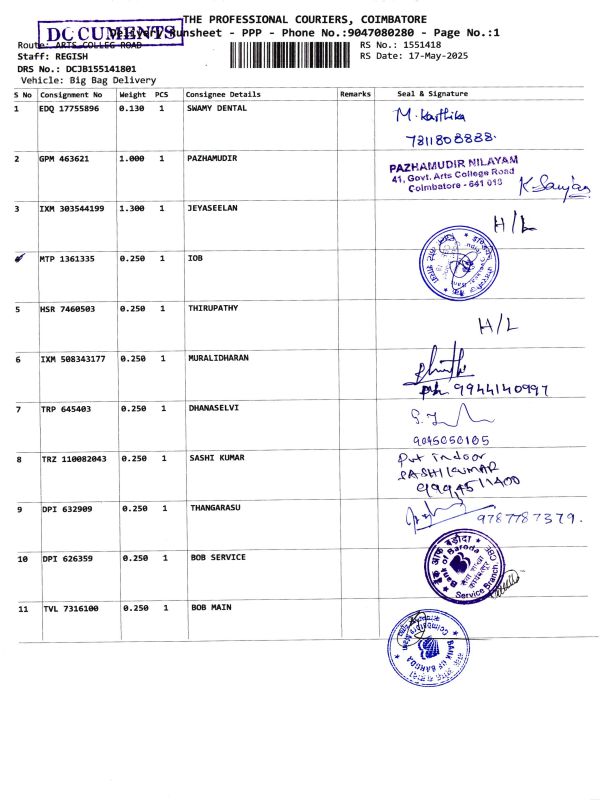 THE PROFESSIONAL COURIERS, COIMBATORE
DOCUMENTS
Delivery Runsheet - PPP - Phone No.:9047080280 - Page No.:1
Route: ARTS COLLEG ROAD
RS No.: 1551418
Staff: REGISH
RS Date: 17-May-2025
DRS No.: DCJB155141801
Vehicle: Big Bag Delivery
S No Consignment No Weight PCS Consignee Details Remarks Seal & Signature
1 EDQ 17755896 0.130 1 SWAMY DENTAL M. Karthika
7811808888.
2 GPM 463621 1.000 1 PAZHAMUDIR PAZHAMUDIR NILAYAM
41, Govt. Arts College Road
Coimbatore - 641 018
3 IXM 303544199 1.300 1 JEYASEELAN H/L
MTP 1361335 0.250 1 IOB
5 HSR 7460503 0.250 1 THIRUPATHY H/L
6 IXM 508343177 0.250 1 MURALIDHARAN
ph 9944140997
7 TRP 645403 0.250 1 DHANASELVI
9045050105
8 TRZ 110082043 0.250 1 SASHI KUMAR Put indoor
SASHI KUMAR
9994511400
9 DPI 632909 0.250 1 THANGARASU 9787787379.
10 DPI 626359 0.250 1 BOB SERVICE बैंक ऑफ बड़ौदा
Bank of Baroda
Service Branch, CBE
11 TVL 7316100 0.250 1 BOB MAIN
BANK OF BARODA